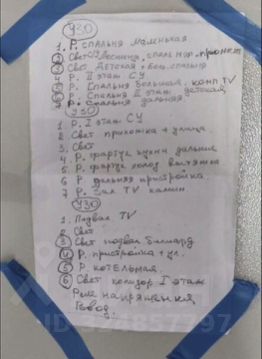 УЗО
1. Р. спальня маленькая
2 Свет лестница, спал мал. прихож
3 Свет Детская + бол. спальня
4 Р. II этаж СУ
5 Р. Спальня большая, комп TV
6 Р. Спальня II этаж детская
7 Р. Спальня дальняя
УЗО
1 Р. I этаж СУ
2 Свет прихожка + улица
3 Свет
4 Р. фартук кухни дальние
5 Р. фартук холод вытяжка
6 Р дальняя пристройка
7 Р. Зал TV камин
УЗО
1. Подвал TV
2 Свет
3 Свет подвал биллиард
4 Р. пристройка + ул.
5 Р котельная.
6 Свет коридор I этаж
Реле напряжения
Ввод.